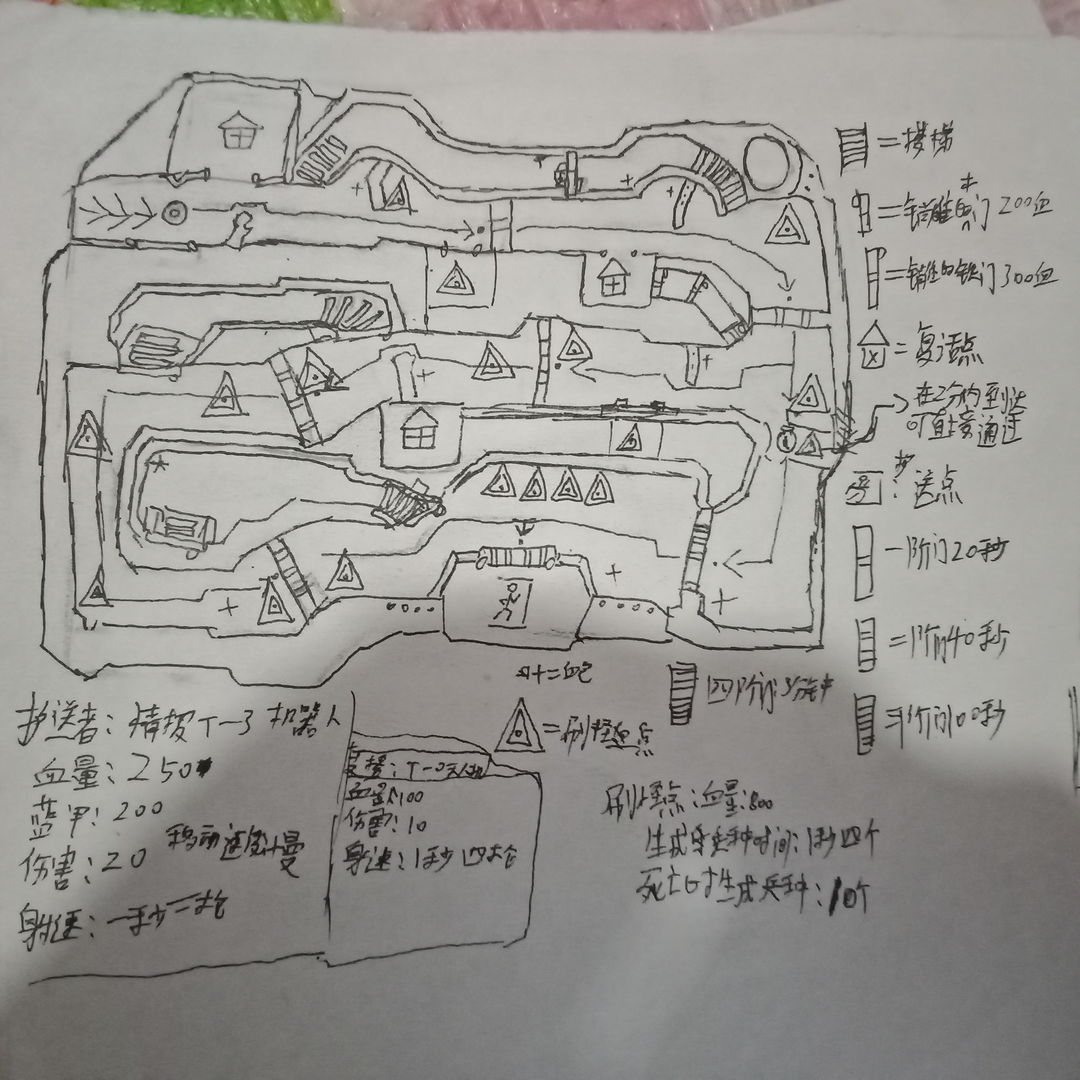 =楼梯
=锁住木门200血
=锁住的铁门300血
=复活点
在2分内到达
可直接通过
护送点
一阶门20秒
=阶门40秒
阶门100秒
四阶门3分钟
+=血包
=刷怪点
护送者：情报T-3机器人
血量：250
蓝甲：200
伤害：20
移动速度慢
射速：一秒二枪
支援：T-0无人机
血量：100
伤害：10
射速：1秒四枪
刷怪点：血量：800
生成兵种时间：1秒四个
死亡时生成兵种：10个